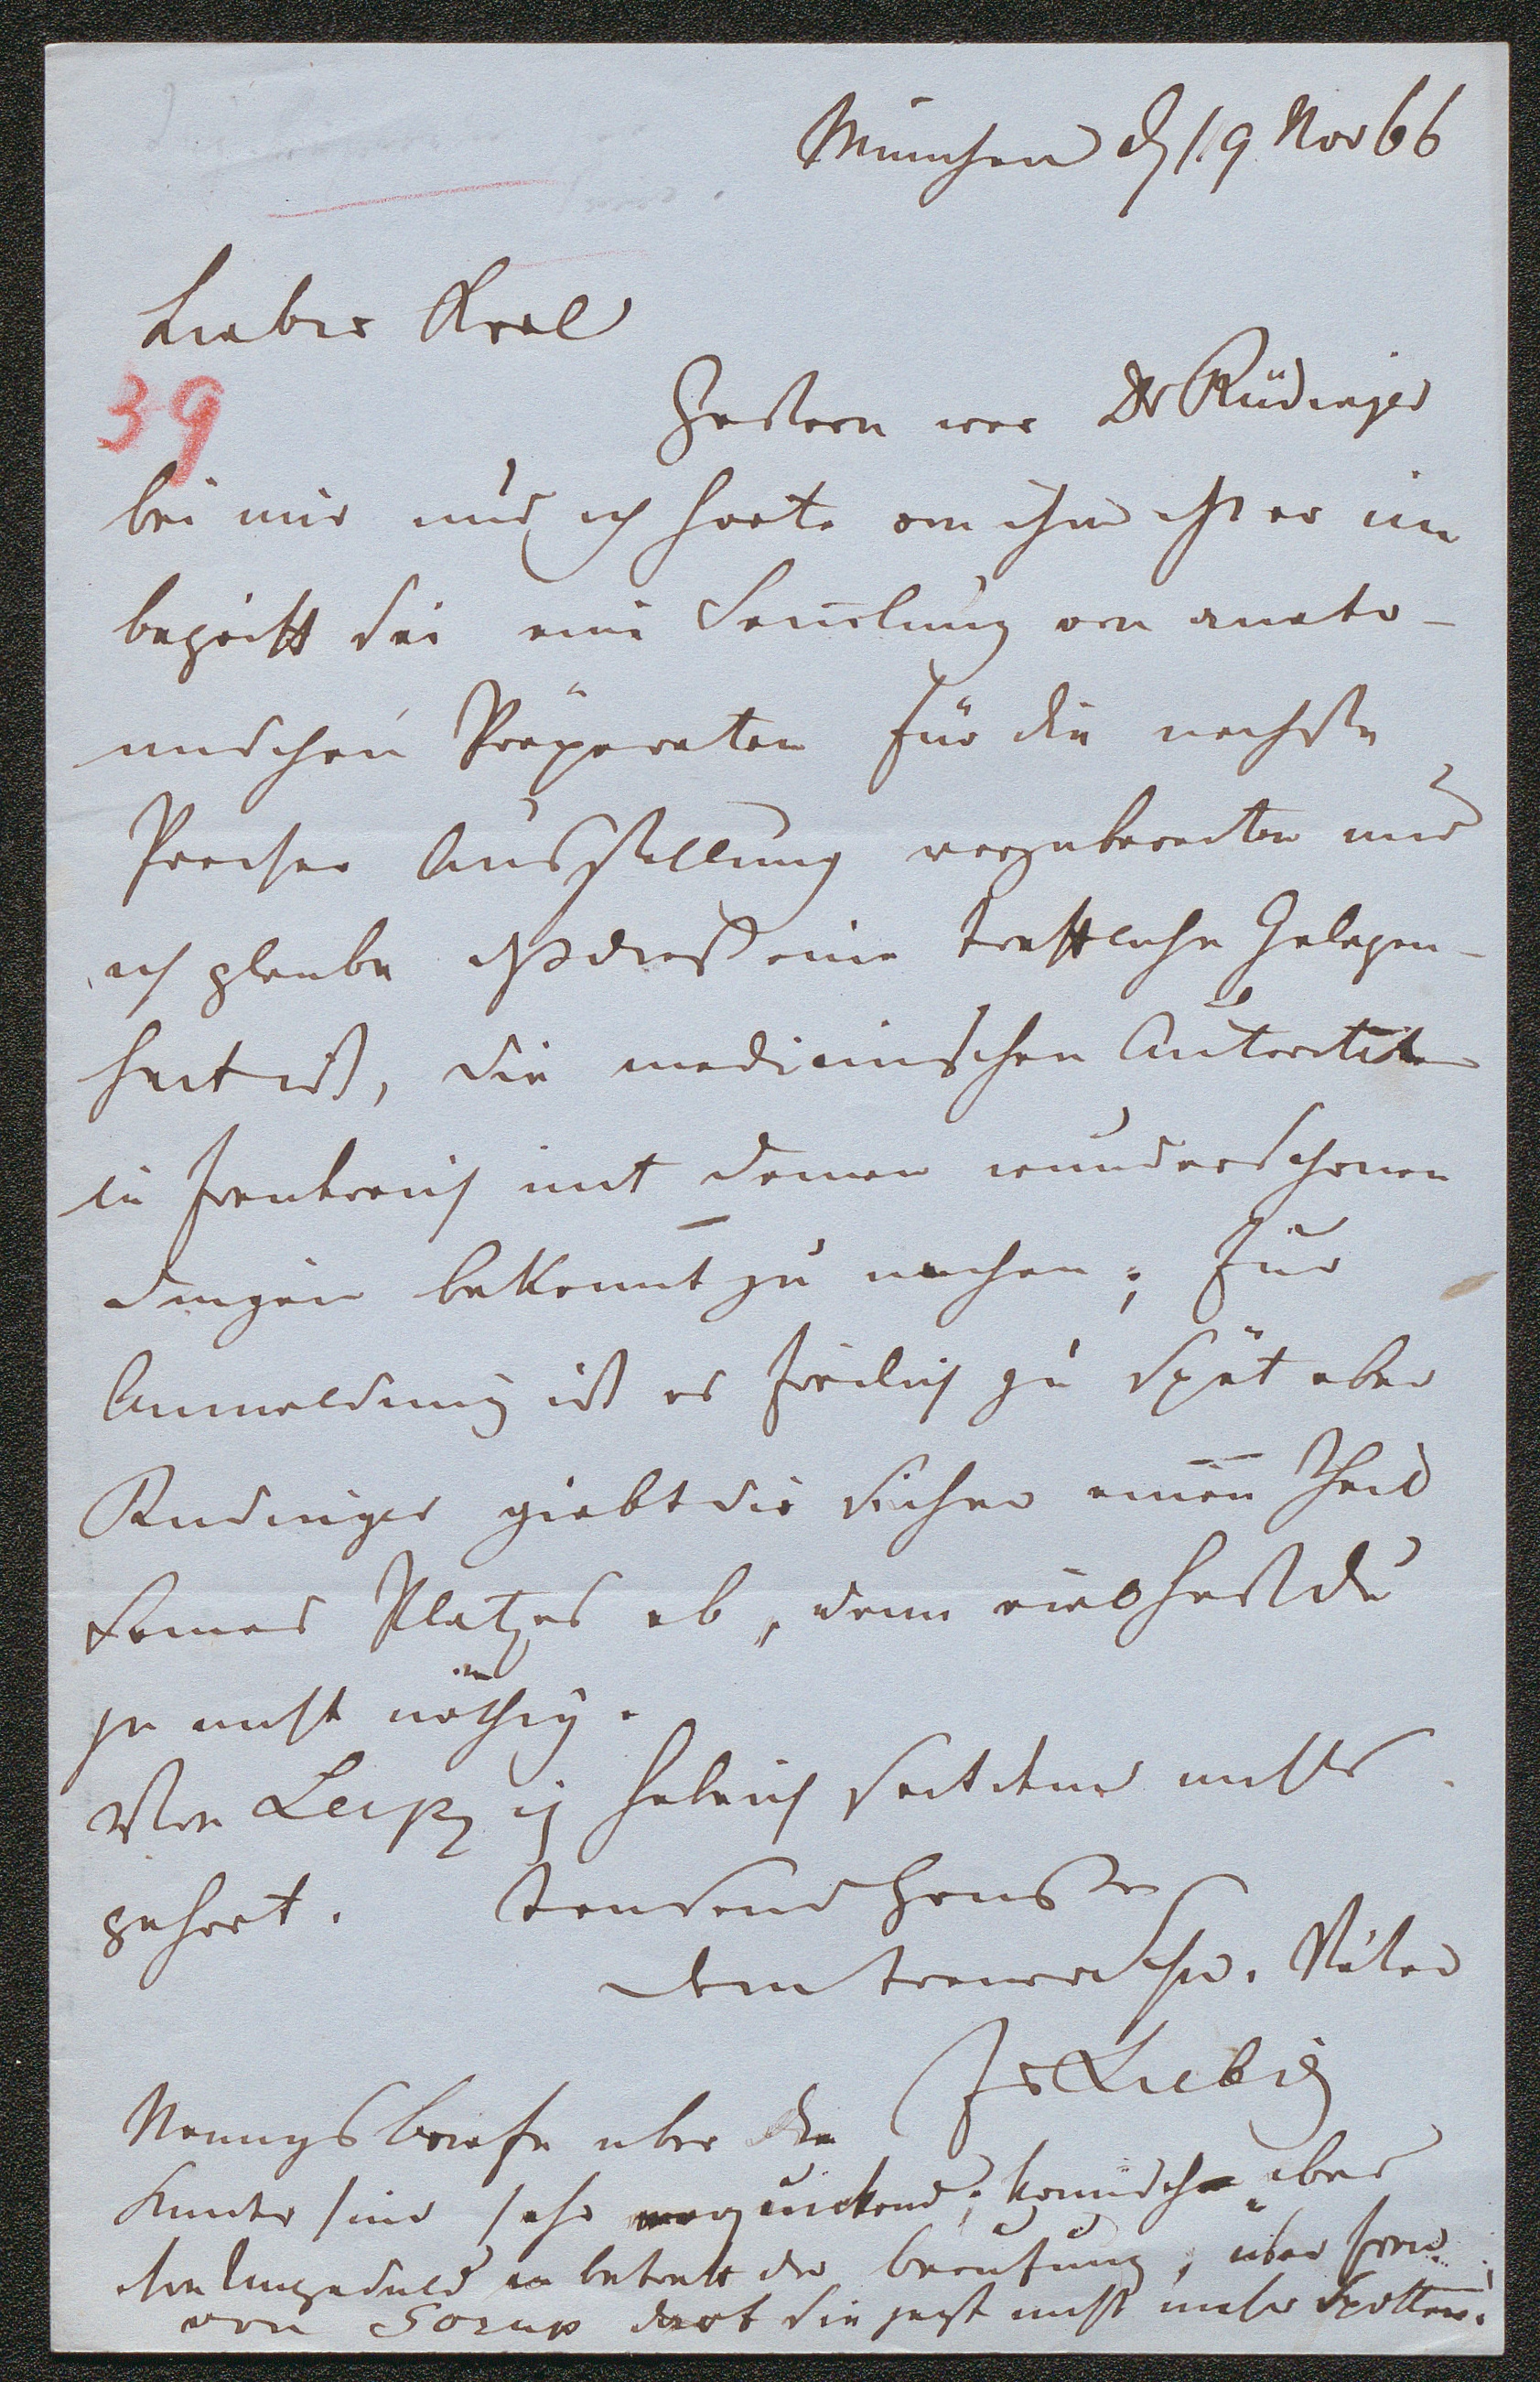 München d 19 Nov 66
Lieber Karl
39
Gestern war Dr Rüdinger
bei mir und ich horte von ihm dß er im
begriff sei eine Sam̄lung von anato-
mischen Präparaten für die nachste
Pariser Ausstellung vorzubereiten und
ich glaube dß dieß eine treffliche Gelegen-
heit ist, die medicinischen Autoritäten
in Frankreich mit Deinen wunderschonen
dingen bekannt zu machen; Zur
Anmeldung ist es freilich zu spät aber
Rudinger giebt dir sicher einen Theil
seines Platzes ab, denn viel hast du
ja nicht nöthig.
Von Leipzig habe ich seitdem nichts
gehort. tausend Grüße
dein treuer Schw. Vater
Js Liebig
Nannys briefe uber die
Kinder sind sehr erquickend; komisch aber
ihre Ungeduld in betreff der berufung, über Frau
von Sorup darf sie jetzt nicht mehr spotten.